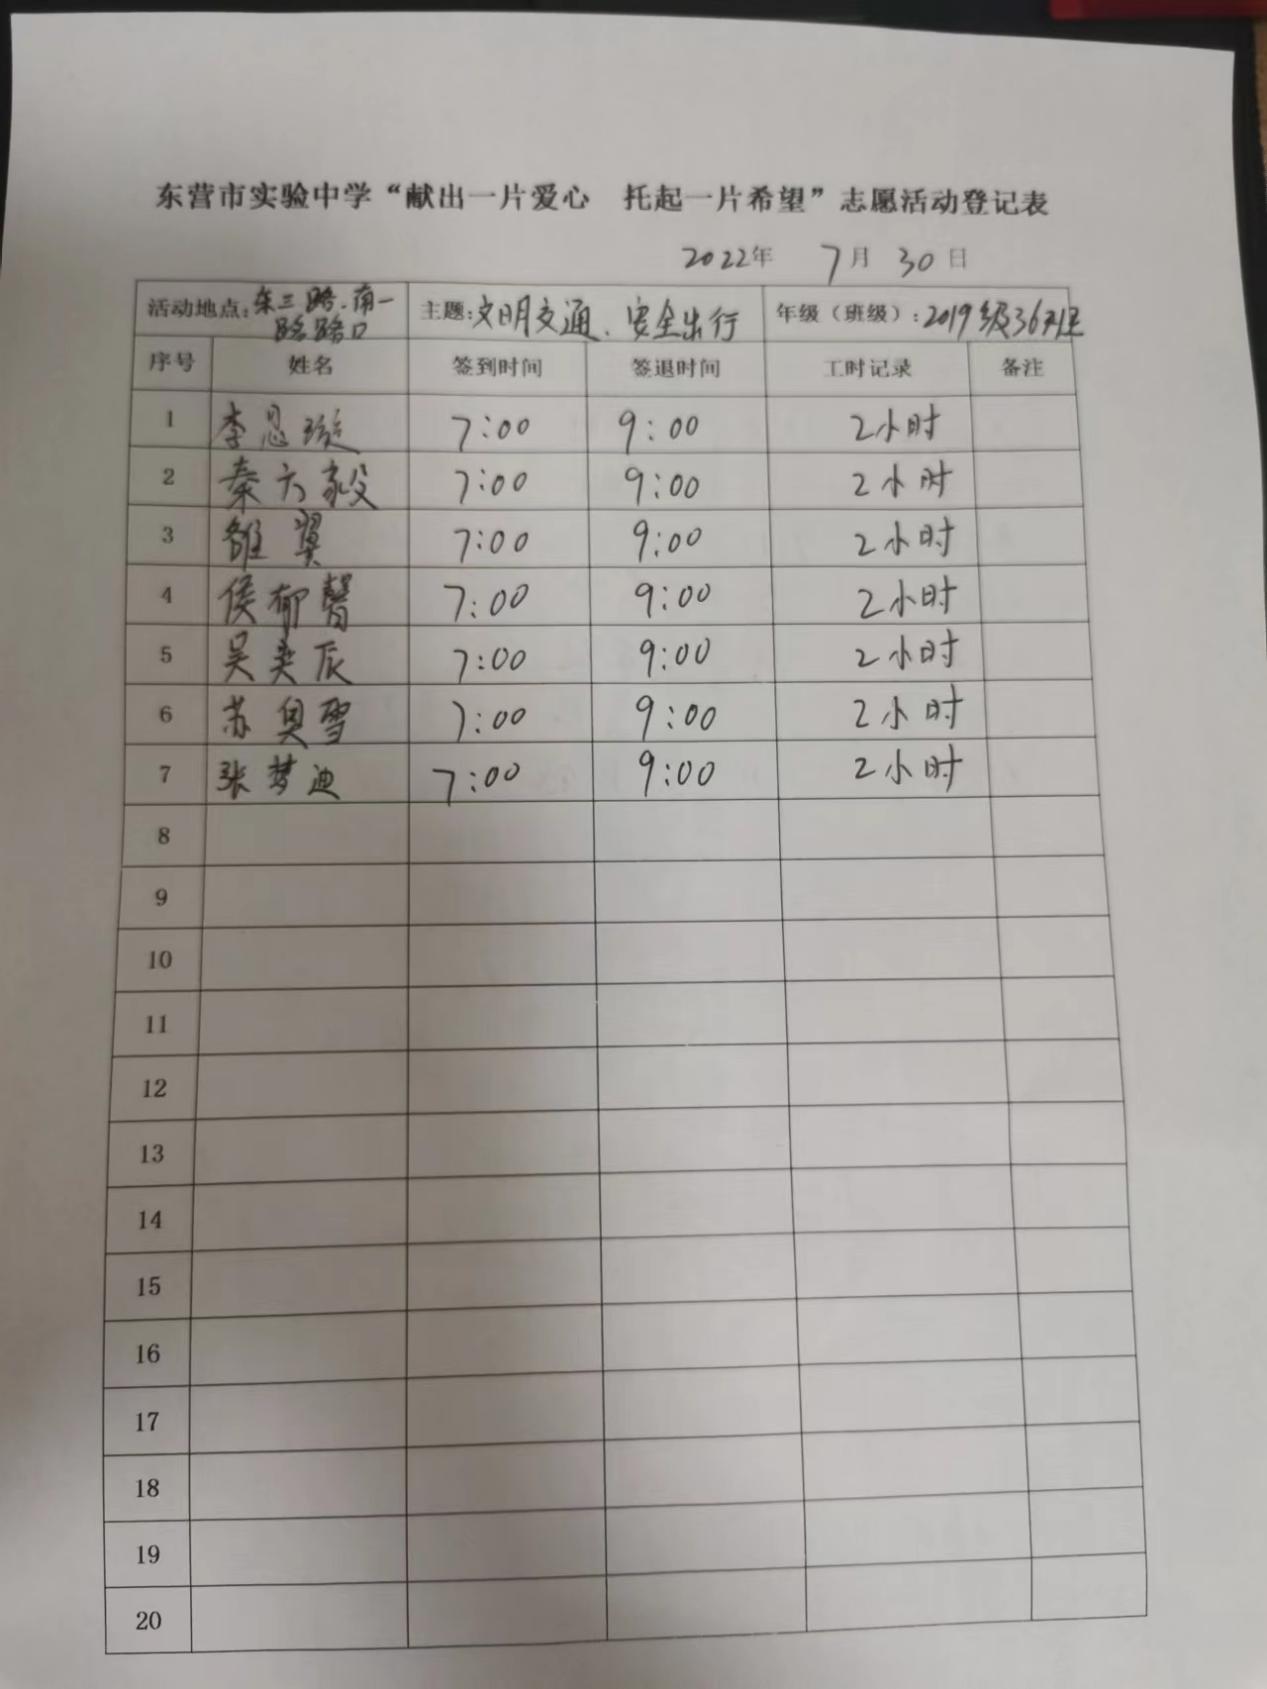 东营市实验中学“献出一片爱心 托起一片希望”志愿活动登记表
2022年 7月 30日
活动地点：东三路、南一路路口 主题：文明交通、安全出行 年级（班级）：2019级36班
序号 姓名 签到时间 签退时间 工时记录 备注
1 李思璇 7:00 9:00 2小时
2 秦六毅 7:00 9:00 2小时
3 翼 7:00 9:00 2小时
4 侯郁馨 7:00 9:00 2小时
5 吴奕辰 7:00 9:00 2小时
6 苏奥雪 7:00 9:00 2小时
7 张梦迪 7:00 9:00 2小时
8
9
10
11
12
13
14
15
16
17
18
19
20